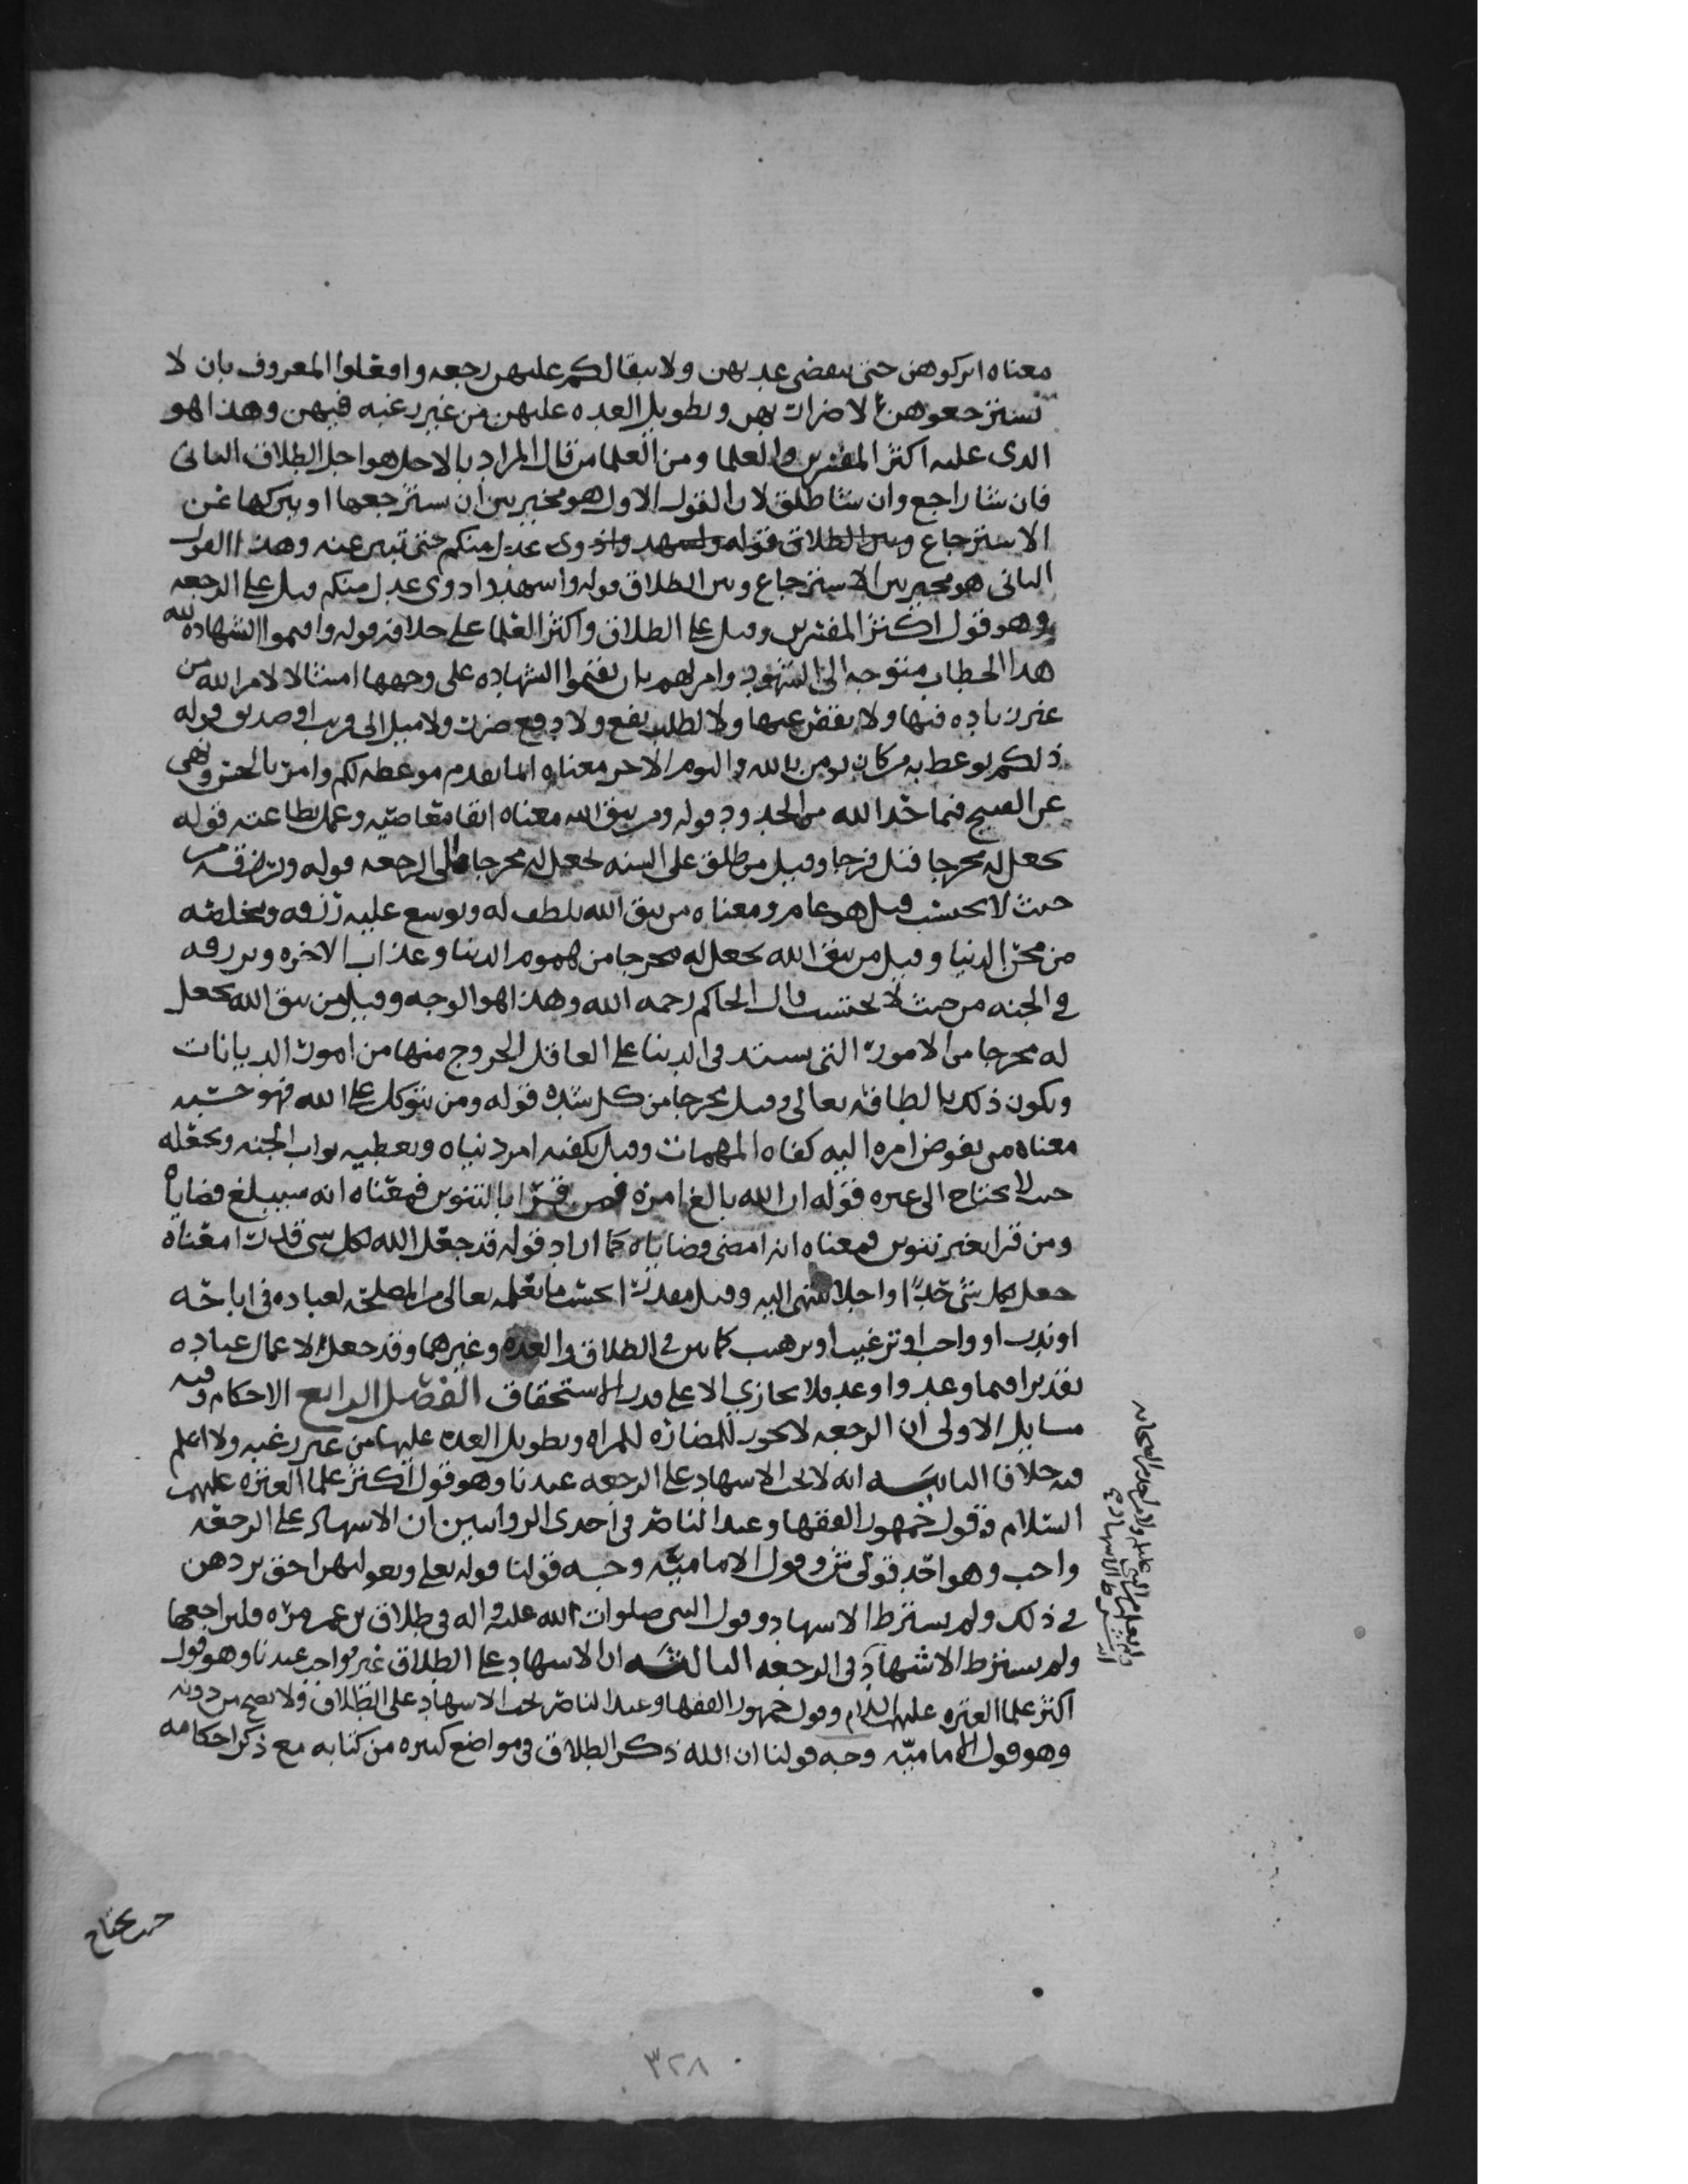 معناه اتركوهن حتى تنقضي عدتهن ولا يبقا لكم عليهن رجعه وافعلوا المعروف بان لا
تسترجعوهن لاضرار بهن وتطويل العده عليهن من غير رغبه فيهن وهذا هو
الذي عليه اكثر المفسرين والعلما ومن العلما من قال المراد بالاجل هو اجل الطلاق الثاني
فان شا راجع وان شا طلق لان القول الاول هو مخير بين ان يسترجعها او يتركها عن
الاسترجاع وبين الطلاق قوله واشهدوا ذوي عدل منكم حتى تبين عنه وهذا القول
الثاني هو مخير بين الاسترجاع وبين الطلاق قوله واشهدوا ذوي عدل منكم قيل على الرجعه
وهو قول اكثر المفسرين وقيل على الطلاق واكثر العلما على خلافه قوله واقيموا الشهاده لله
هذا الخطاب متوجه الى الشهود وامر لهم بان يقيموا الشهاده على وجهها امتثالا لامر الله من
غير زياده فيها ولا نقص عنها ولا لطلب نفع ولا دفع ضرر ولا ميل الى قريب او صديق قوله
ذلكم يوعظ به من كان يومن بالله واليوم الاخر معناه انما تقدم موعظه لكم وامر بالحسن ونهي
عن القبيح فيما حد الله من الحدود قوله ومن يتق الله معناه اتقا معاصيه وعمل بطاعته قوله
يجعل له مخرجا قيل فرجا وقيل من طلق على السنه يجعل له مخرجا الى الرجعه قوله ويرزقه من
حيث لا يحتسب قيل هو عام ومعناه من يتق الله يلطف له ويوسع عليه رزقه ويخلصه
من محن الدنيا وقيل من يتق الله يجعل له مخرجا من هموم الدنيا وعذاب الاخره ويرزقه
في الجنه من حيث لا يحتسب قال الحاكم رحمه الله وهذا هو الوجه وقيل من يتق الله يجعل
له مخرجا من الامور التي يستد في الدنيا على العاقل الخروج منها من امور الديانات
ويكون ذلك بالطافه تعالى وقيل مخرجا من كل شده قوله ومن يتوكل على الله فهو حسبه
معناه من يفوض امره اليه كفاه المهمات وقيل يكفيه امر دنياه ويعطيه ثواب الجنه ويجعله
حيث لا يحتاج الى غيره قوله ان الله بالغ امره فمن قرا بالتنوين فمعناه انه سيبلغ قضاياه
ومن قرا بغير تنوين فمعناه انه امضى قضاياه كما اراد قوله قد جعل الله لكل شي قدرا معناه
جعل لكل شي حدا واجلا ينتهي اليه وقيل مقدرا بحسب ما يعلمه تعالى من المصلحه لعباده في اباحه
او ندب او واجب او ترغيب او ترهيب كما بين في الطلاق والعده وغيرهما وقد جعل لاعمال عباده
تقديرا فيما وعد واوعد فلا يجازي الا على قدر الاستحقاق الفصل الرابع الاحكام وفيه
مسايل الاولى ان الرجعه لا تجوز للمضاره للمراه وتطويل العده عليها من غير رغبه ولا اعلم
فيه خلافا الثانيه انه لا يجب الاشهاد على الرجعه عندنا وهو قول اكثر علما العتره عليهم
السلام وقول جمهور الفقها وعند الناصر في احدى الروايتين ان الاشهاد على الرجعه
واجب وهو احد قولي ش وقول الاماميه وجه قولنا قوله تعالى وبعولتهن احق بردهن
في ذلك ولم يشترط الاشهاد وقول النبي صلوات الله عليه واله في طلاق بن عمر مره فليراجعها
ولم يشترط الاشهاد في الرجعه الثالثه ان الاشهاد على الطلاق غير واجب عندنا وهو قول
اكثر علما العتره عليهم السلام وقول جمهور الفقها وعند الناصر يجب الاشهاد على الطلاق ولا يصح من دونه
وهو قول الاماميه وجه قولنا ان الله ذكر الطلاق في مواضع كثيره من كتابه مع ذكر احكامه
ولم يعلم من النبي عليه ولا من احد من الصحابه
انه شرط الاشهاد
٣٢٨